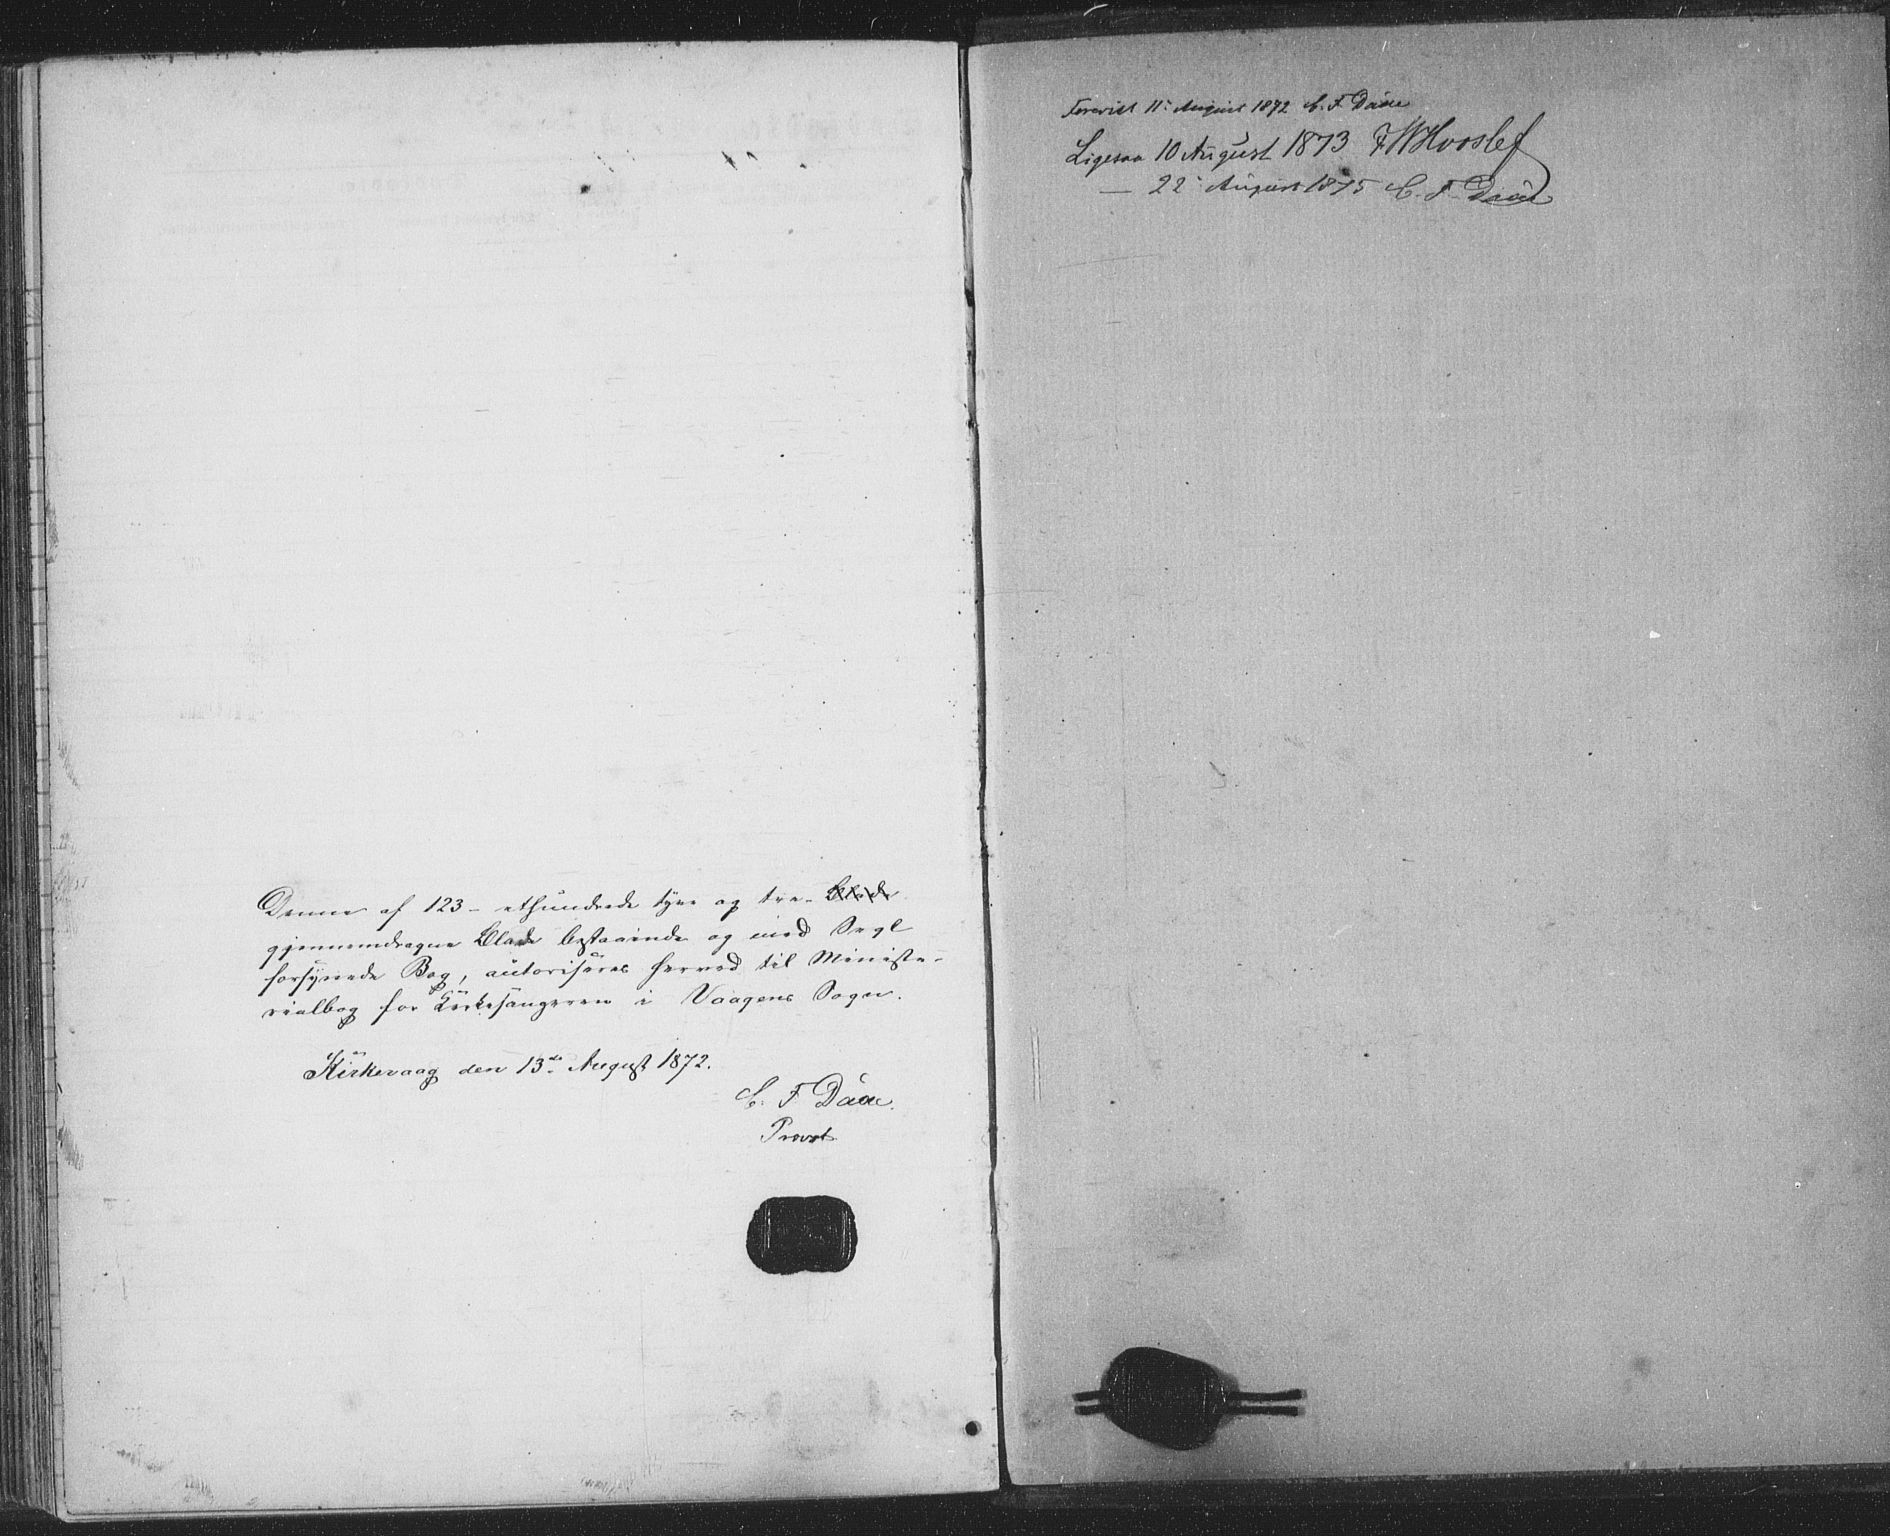 Denne af 123 - ethundrede tyve og tre - Blade
gjennemdragne Blade bestaaende og med Segl
forsynede Bog, autoriseres herved til Ministe-
rialbog for Kirkesangeren i Vaagens Sogn.
Kirkevaag den 13de August 1872.
C. F. Daae.
Provst
Forevist 11te August 1872 C. F. Daae
Ligesaa 10 August 1873 FWHvoslef
— 22 August 1875 C. F. Daae